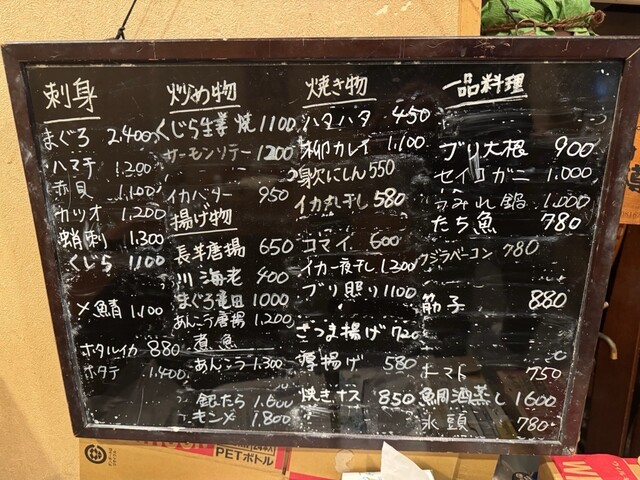 刺身
まぐろ 2,400
ハマチ 1,200
赤貝 1,100
カツオ 1,200
蛸刺 1,300
くじら 1100
〆鯖 1,100
ホタルイカ 880
ホタテ 1,400
炒め物
くじら生姜焼 1100
サーモンソテー 1200
イカバター 950
揚げ物
長芋唐揚 650
川海老 400
まぐろ竜田 1000
あんこう唐揚 1,200
煮魚
あんこう 1,300
銀だら 1,600
キンメ 1,800
焼き物
ハタハタ 450
柳カレイ 1,100
身欠にしん 550
イカ丸干し 580
コマイ 600
イカ一夜干し 1,200
ブリ照り 1100
さつま揚げ 720
厚揚げ 580
焼きナス 850
一品料理
ブリ大根 900
セイコガニ 1.000
つみれ鍋 1.000
たち魚 780
クジラベーコン 780
筋子 880
トマト 750
鯛酒蒸し 1600
氷頭 780
PETボトル